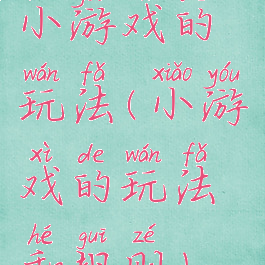 小游戏的
wán fǎ xiǎo yóu
玩法(小游
xì de wán fǎ
戏的玩法
hé guī zé
和规则)